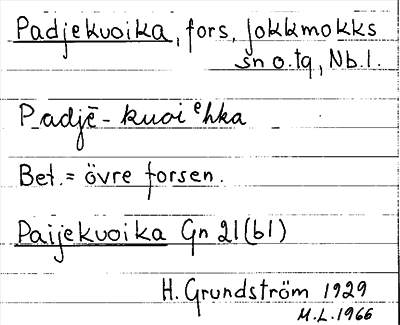 Padjekuoika, fors, Jokkmokks
sn o. tg, Nb.l.
Padjē-kuoiᵉhka
Bet. = övre forsen.
Paijekuoika Gn 21(b1)
H. Grundström 1929
M.L. 1966